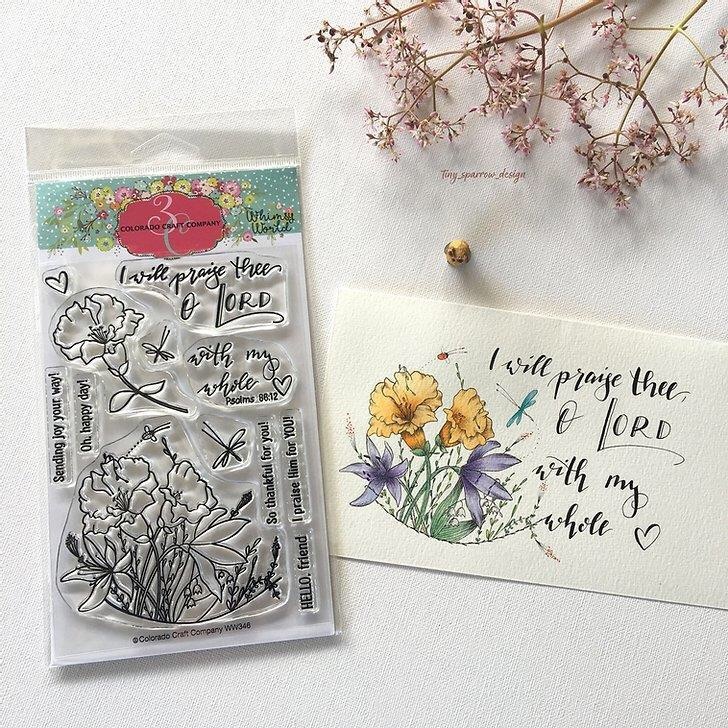 Tiny_sparrow_design
3C
COLORADO CRAFT COMPANY
Whimsy
World
I will praise thee,
O LORD
with my
whole
Psalms 86:12
Sending joy your way!
Oh, happy day!
So thankful for you!
I praise Him for YOU!
HELLO, friend
©Colorado Craft Company WW346
I will praise thee,
O LORD
with my
whole